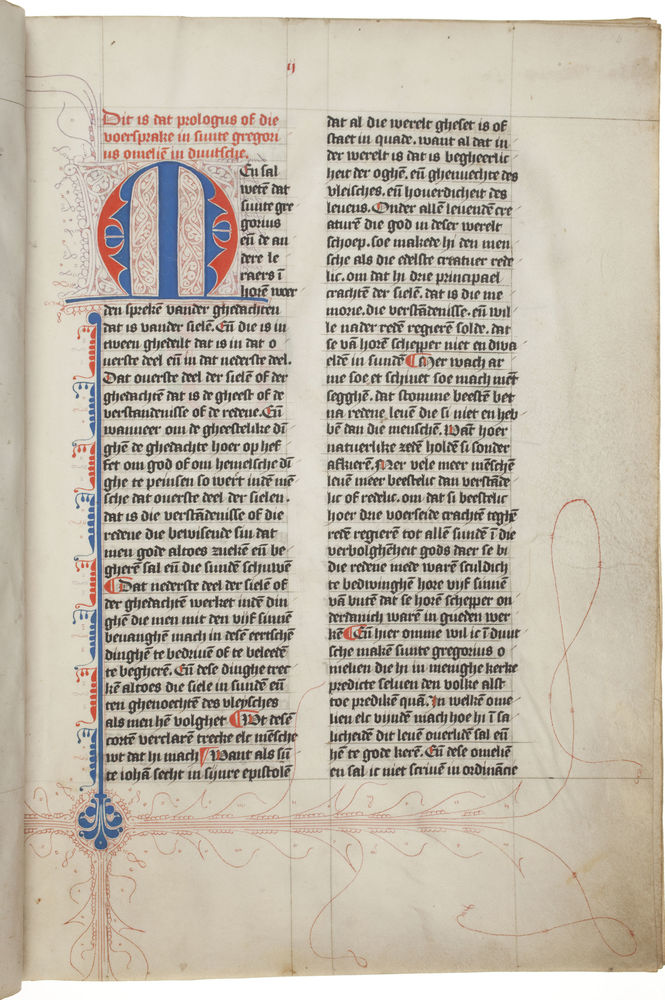 ij
Dit is dat prologus of die
voersprake in sunte gregori
us omeliē in duutsche.
MEn sal
wetē dat
sunte gre
gorius
eñ de an
dere le
raers ī
horē woer
den sprekē vander ghedachten
dat is vander sielē. Eñ die is in
tween ghedeilt dat is in dat o
uerste deel eñ in dat nederste deel.
Dat ouerste deel der sielē of der
ghedachtē dat is de gheest of de
verstandenisse of de redene. Eñ
wanneer om de gheestelike dī
ghē de ghedachte hoer op hef
fet om god of om hemelsche dī
ghe te peinsen so wert indē mē
sche dat ouerste deel der sielen.
dat is die verstādenisse of die
redene die bewisende sin dat
men gode altoes zuekē eñ be
gherē sal eñ die sundē schuwē
Dat nederste deel der sielē of
der ghedachtē werket indē din
ghē die men mit den vijf sinnē
beuanghē mach in desē eertschē
dinghē te bedriuē of te beleedē
te begherē. Eñ dese dinghe trec
kē altoes die siele in sundē eñ
ten ghenoechtē des vleysches
als men hē volghet Wt desē
cortē verclarē trecke elc mēsche
wt dat hi mach Want als sū
te iohā secht in sijnre epistolē
dat al die werelt gheset is of
staet in quade. want al dat in
der werelt is dat is begheerlic
heit der oghē. eñ ghenuechte des
vleisches. eñ houerdicheit des
leuens. Onder allē leuendē cre
aturē die god in deser werelt
schoep. soe makede hi den men
sche als die edelste creatuer rede
lic. om dat hi drie principael
crachtē der sielē. dat is die me
morie. die verstādenisse. eñ wil
le na der redē regierē solde. dat
se vā horē schepper niet en dwa
eldē in sundē Mer wach ar
me soe et schinet soe mach mēt
segghē. dat stomme beestē bet
na redene leuē die si niet en heb
bē dan die menschē. Wāt hoer
natuerlike zedē holdē si sonder
afkierē. Mer vele meer mēschē
leuē meer beestelic dan verstāde
lic of redelic. om dat si beestelic
hoer drie voerseide crachtē teghē
redē regierē tot allē sundē ī die
verbolghēheit gods daer se bi
die redene mede warē sculdich
te bedwinghē hore vijf sinnē
vā butē dat se horē schepper on
derdanich warē in gueden wer
kē Eñ hier omme wil ic ī duut
sche makē sunte gregorius o
melien die hi in menighe kerke
predicte seluen den volke alst
toe predikē quā. In welkē ome
lien elc vindē mach hoe hi ī sa
licheide dit leuē ouerlidē sal eñ
hē te gode kerē. Eñ dese omeliē
en sal ic niet scriuē in ordinācie